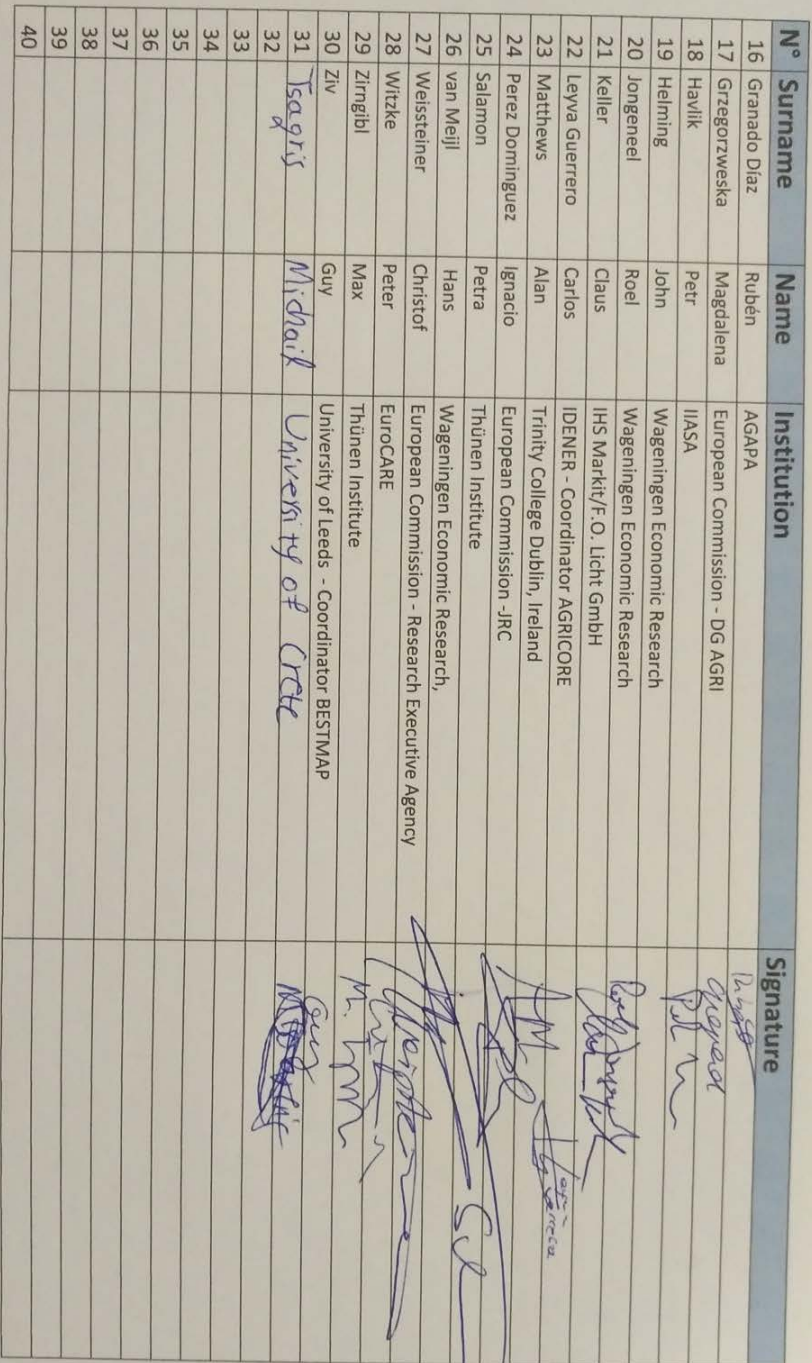 N° Surname Name Institution Signature
16 Granado Díaz Rubén AGAPA
17 Grzegorzweska Magdalena European Commission - DG AGRI
18 Havlik Petr IIASA
19 Helming John Wageningen Economic Research
20 Jongeneel Roel Wageningen Economic Research
21 Keller Claus IHS Markit/F.O. Licht GmbH
22 Leyva Guerrero Carlos IDENER - Coordinator AGRICORE
23 Matthews Alan Trinity College Dublin, Ireland
24 Perez Dominguez Ignacio European Commission -JRC
25 Salamon Petra Thünen Institute
26 van Meijl Hans Wageningen Economic Research,
27 Weissteiner Christof European Commission - Research Executive Agency
28 Witzke Peter EuroCARE
29 Zirngibl Max Thünen Institute
30 Ziv Guy University of Leeds - Coordinator BESTMAP
31 Tsagris Michail University of Crete
32
33
34
35
36
37
38
39
40